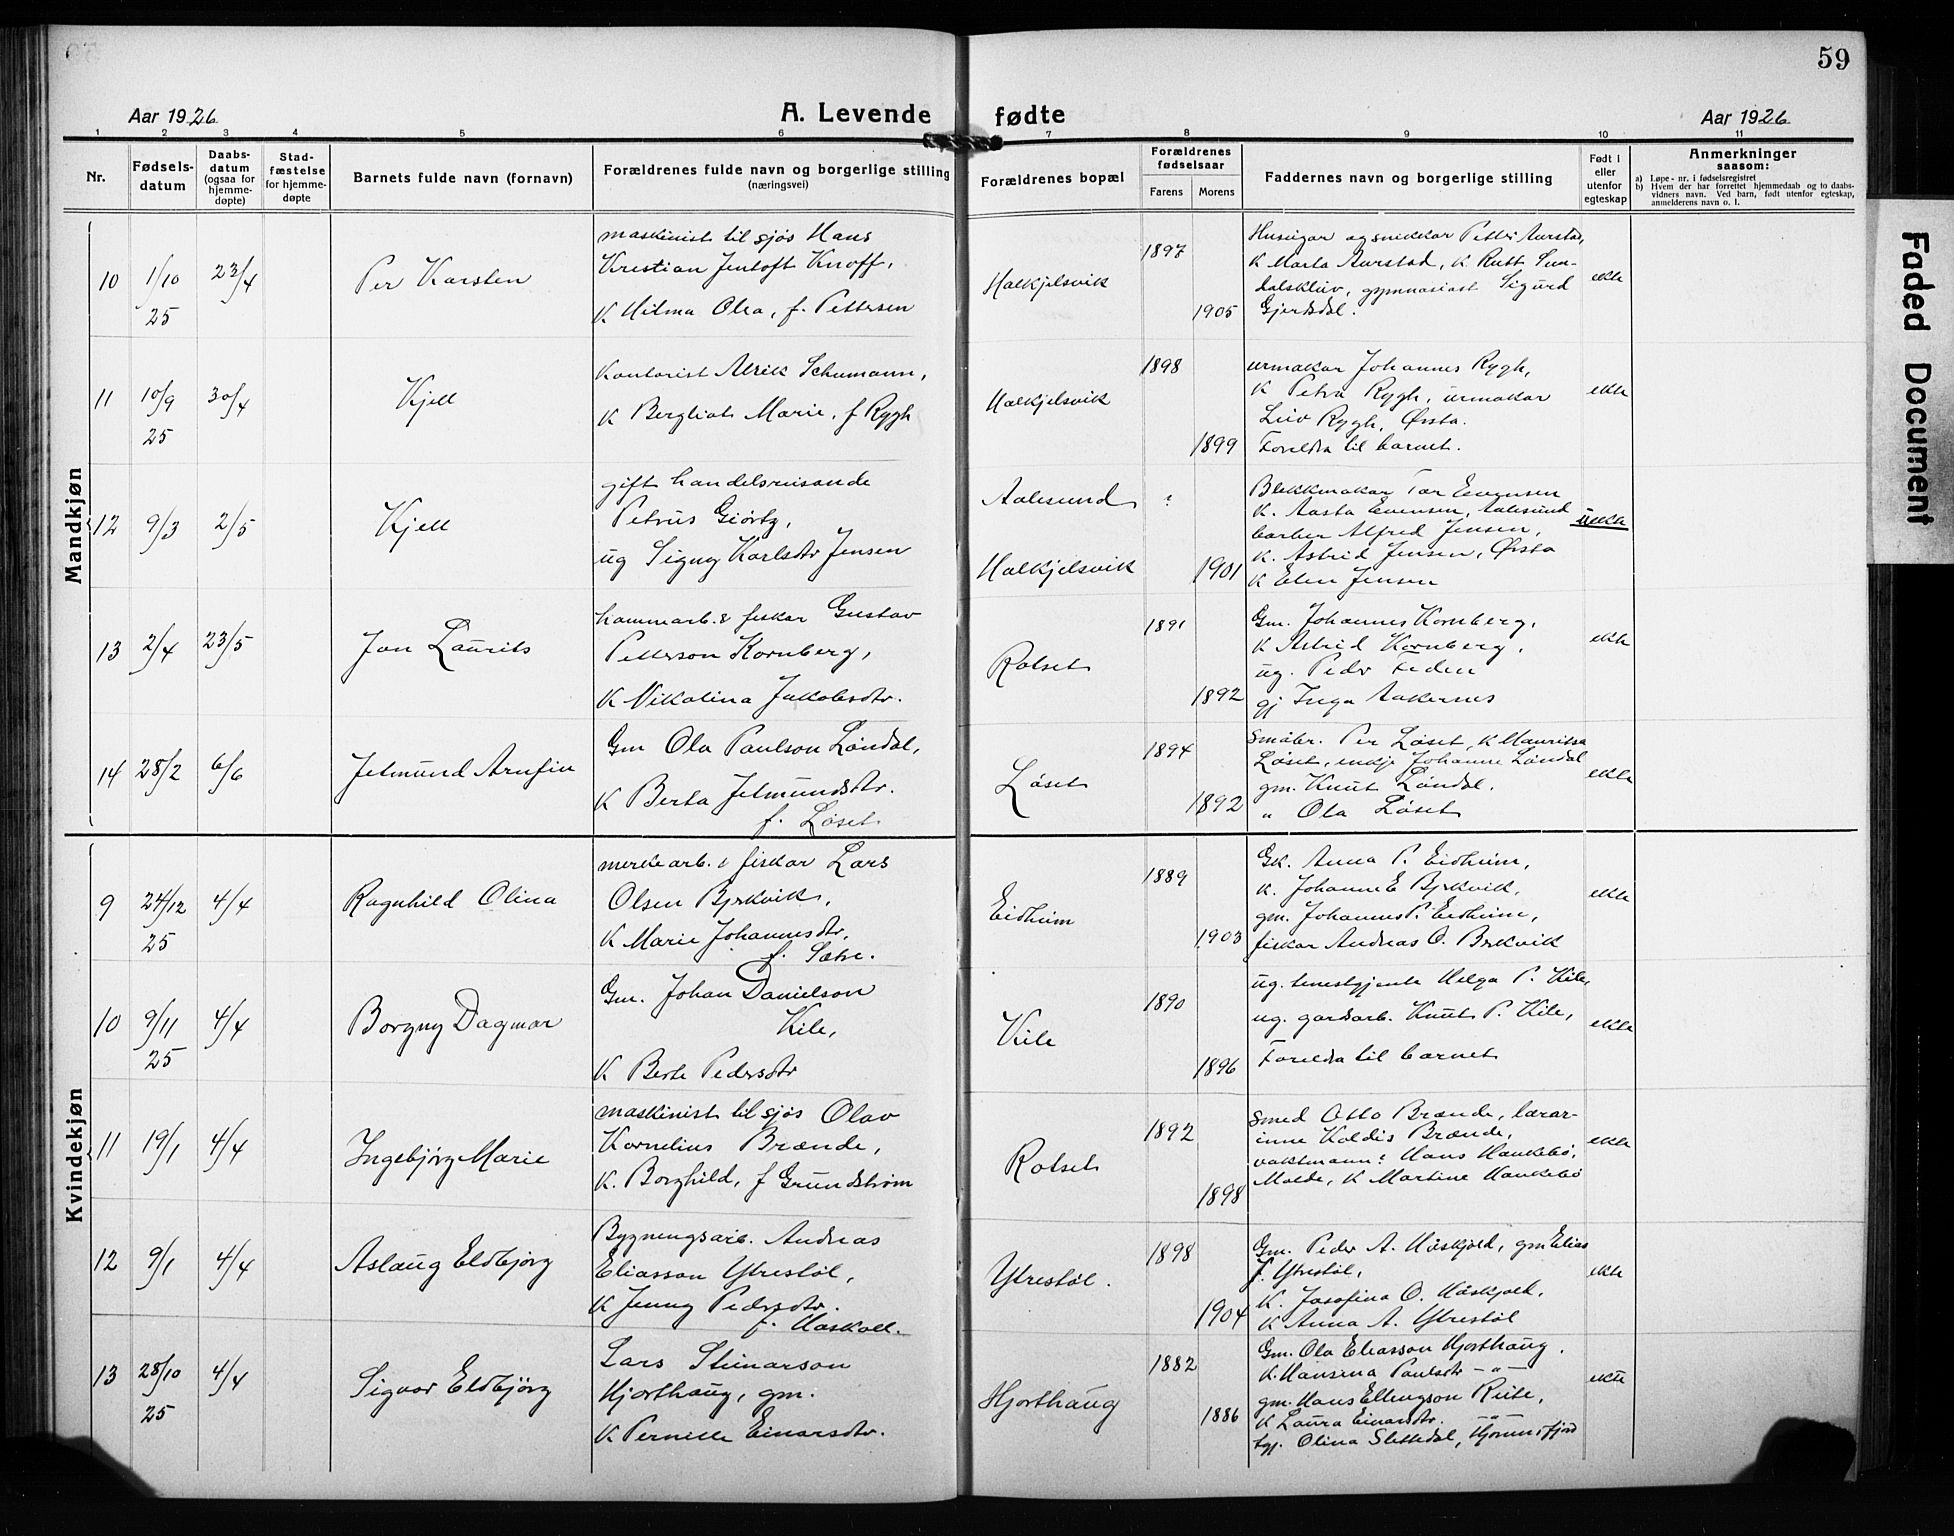 59
Aar 1926
A. Levende fødte
Aar 1926
1 2 3 4 5 6 7 8 9 10 11
Nr.
Fødsels-
datum
Daabs-
datum
(ogsaa for
hjemme-
døpte)
Stad-
fæstelse
for hjemme-
døpte
Barnets fulde navn (fornavn)
Forældrenes fulde navn og borgerlige stilling
(næringsvei)
Forældrenes bopæl
Forældrenes
fødselsaar
Farens
Morens
Faddernes navn og borgerlige stilling
Født i
eller
utenfor
egteskap
Anmerkninger
saasom:
a) Løpe-nr. i fødselsregistret
b) Hvem der har forrettet hjemmedaab og to daabs-
vidners navn. Ved barn, født utenfor egteskap,
anmelderens navn o. l.
Mandkjøn
10
1/10
25
23/4
Per Karsten
maskinist til sjøs Hans
Kristian Jentoft Knoff,
K Hilma Olea, f. Pettersen
Halkjelsvik
1897
1905
Huseigar og snikkar Petter Aurstad,
K Marta Aurstad, K Rutt Sun-
dalskleiv, gymnasiast Sigurd
Gjerdsdal.
ekte
11
10/9
25
30/4
Kjell
Kontorist Alrik Schumann,
K Bergliot Marie, f Rygh
Halkjelsvik
1898
1899
urmakar Johannes Rygh,
K Petra Rygh, urmakar
Leiv Rygh, Ørsta.
Foreldra til barnet.
ekte
12
9/3
2/5
Kjell
gift handelsreisande
Petrus Giørtz,
ug Signy Karlsdtr Jensen
Aalesund
Halkjelsvik
?
1901
Blikkmakar Tor Evensen
K. Aasta Evensen, Aalesund
barber Alfred Jensen,
K. Astrid Jensen, Ørsta
K Elen Jensen
uekte
13
2/4
23/5
Jon Laurits
hammarb. & fiskar Gustav
Petterson Kornberg,
K Nikolina Jakobsdtr.
Rotset
1891
1892
Gm. Johannes Kornberg,
K Astrid Kornberg,
ug. Peder Feden
gj Inga Aakernes
ekte
14
28/2
6/6
Jetmund Arnfin
Gm Ola Paulson Løndal,
K Berta Jetmundsdtr.
f. Løset
Løset
1894
1892
Småbr. Per Løset, K Mauritsa
Løset, enkje Johanne Løndal
gm. Knut Løndal,
" Ola Løset
ekte
Kvindekjøn
9
24/12
25
4/4
Ragnhild Olina
merkearb. & fiskar Lars
Olsen Bjrkvik,
K Marie Johannesdtr.
f. Sætre.
Eidheim
1889
1903
Gk. Anna P. Eidheim,
K. Johanne E Bjrkvik,
gm. Johannes P. Eidheim,
fiskar Andreas O. Brkvik
ekte
10
9/11
25
4/4
Borgny Dagmar
Gm. Johan Danielson
Kile,
K Berte Pedersdtr
Kile
1890
1896
ug. tenestgjente Helga P. Kile,
ug. gardsarb. Knut P. Kile,
Foreldra til barnet
ekte
11
19/1
4/4
Ingebjørg Marie
maskinist til sjøs Olav
Kornelius Brænde,
K. Borghild, f Grundstrøm
Rotset
1892
1898
Smed Otto Brænde, lærar-
inne Valdis Brænde,
vaktmann? Hans Haukebø,
Molde, K Martine Haukebø
ekte
12
9/1
4/4
Aslaug Eldbjørg
Bygningsarb. Andreas
Eliasson Ytrestøl,
K Jenny Pedersdtr.
f. Håskoll.
Ytrestøl.
1898
1904
Gm. Peder A. Håskjold, gm Elias
J. Ytrestøl,
K. Josefina O. Håskjold,
K Anna A. Ytrestøl
ekte
13
28/10
25
4/4
Sigvor Eldbjørg
Lars Steinarson
Hjorthaug, gm.
K Pernille Einarsdtr.
Hjorthaug
1882
1886
Gm. Ola Eliasson Hjorthaug.
K. Hansina Paulsdtr — " —
gm. Hans Ellingson Reite,
K Laura Einarsdtr. — " —
tgj. Olina Slettedal, Hjørundfjord
ekte
Faded Document